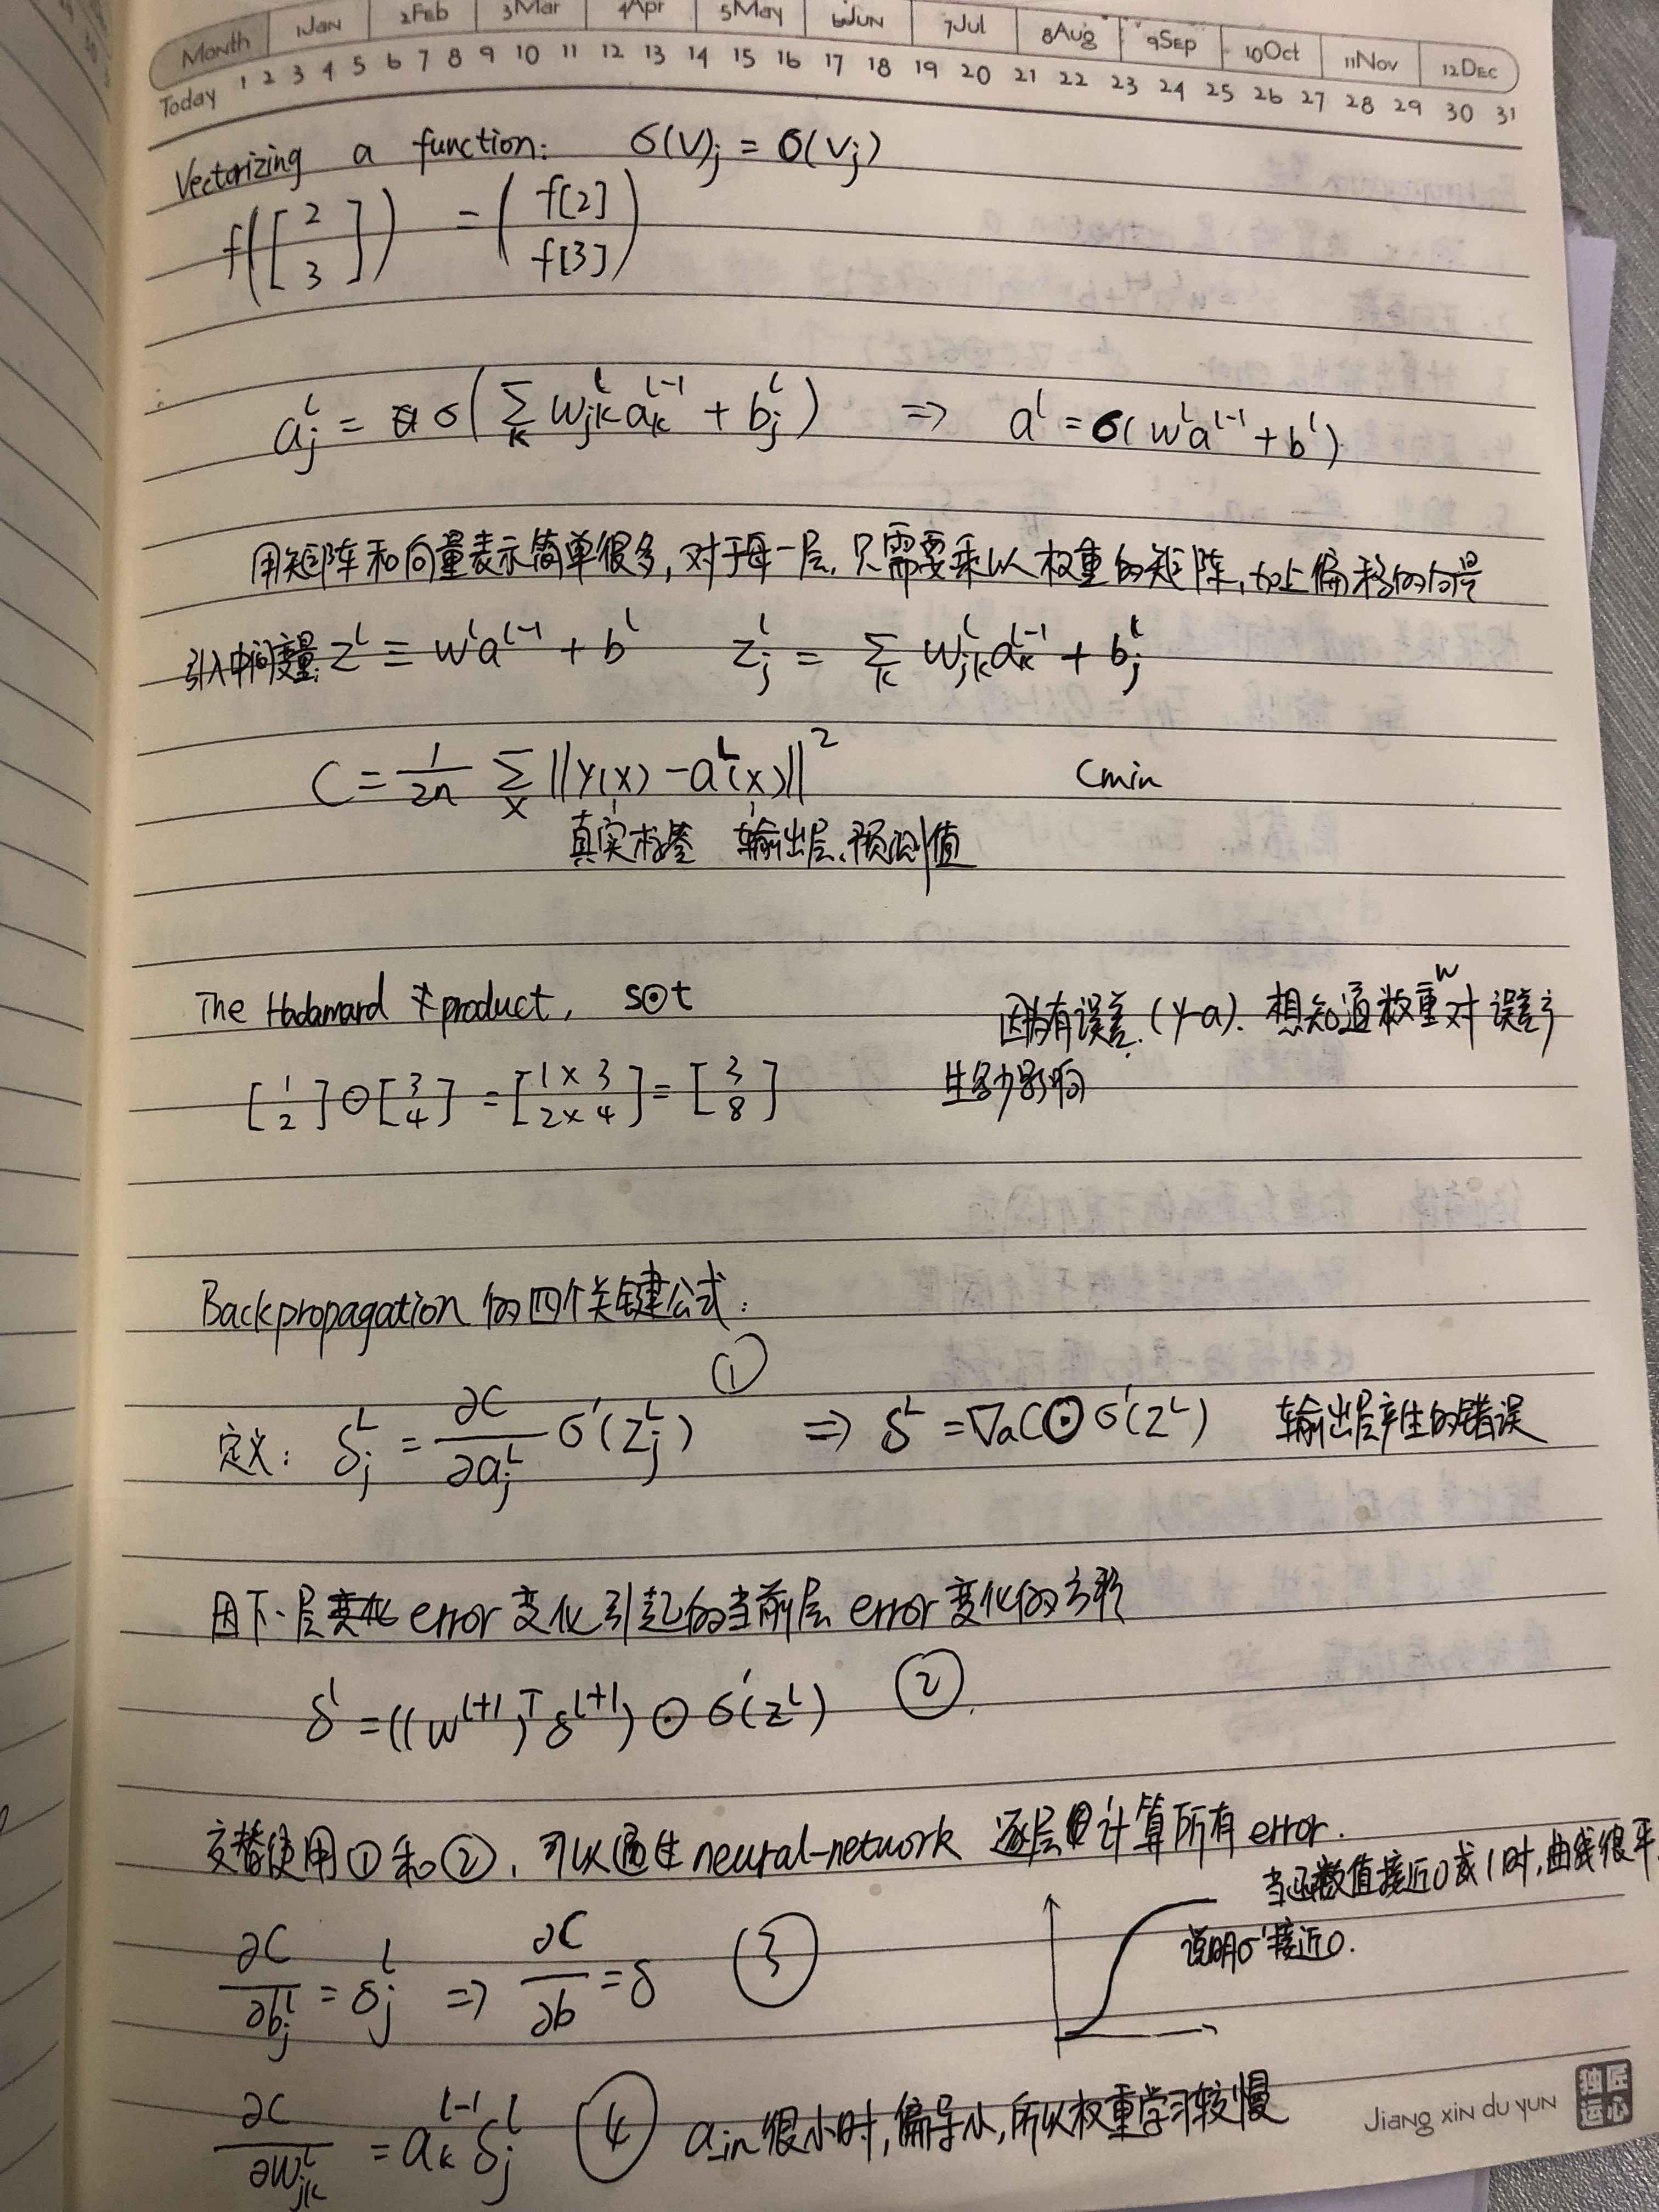 Month 1Jan 2Feb 3Mar 4Apr 5May 6Jun 7Jul 8Aug 9Sep 10Oct 11Nov 12Dec
Today 1 2 3 4 5 6 7 8 9 10 11 12 13 14 15 16 17 18 19 20 21 22 23 24 25 26 27 28 29 30 31
Vectorizing a function: σ(v)_j = σ(v_j)
f([2 3]) = (f[2] f[3])
a_j^l = σ(∑_k w_jk^l a_k^{l-1} + b_j^l) ⇒ a^l = σ(w^l a^{l-1} + b^l).
用矩阵和向量表示简单很多,对于每一层,只需要乘以权重的矩阵,加上偏移的向量
引入中间变量: z^l ≡ w^l a^{l-1} + b^l z_j^l = ∑_k w_jk^l a_k^{l-1} + b_j^l
C = 1/2n ∑_x ||y(x) - a^L(x)||^2 Cmin
真实标签 输出层,预测值
The Hadamard product, s⊙t
因为有误差.(y-a).想知道权重w对误差产
生多少影响
[1 2] ⊙ [3 4] = [1×3 2×4] = [3 8]
Backpropagation的四个关键公式:
①
定义: δ_j^L = ∂C/∂a_j^L σ'(z_j^L) ⇒ δ^L = ∇aC ⊙ σ'(z^L) 输出层产生的错误
用下一层 error 变化引起的当前层 error 变化的方形
δ^l = ((w^{l+1})^T δ^{l+1}) ⊙ σ'(z^l) ②.
交替使用①和②,可以通过neural-network 逐层计算所有error.
当函数值接近0或1时,曲线很平.
说明σ'接近0.
∂C/∂b_j^l = δ_j^l ⇒ ∂C/∂b = δ ③
∂C/∂w_jk^l = a_k^{l-1} δ_j^l ④ a_in很小时,偏导小,所以权重学习较慢
Jiang xin du yun 独匠运心